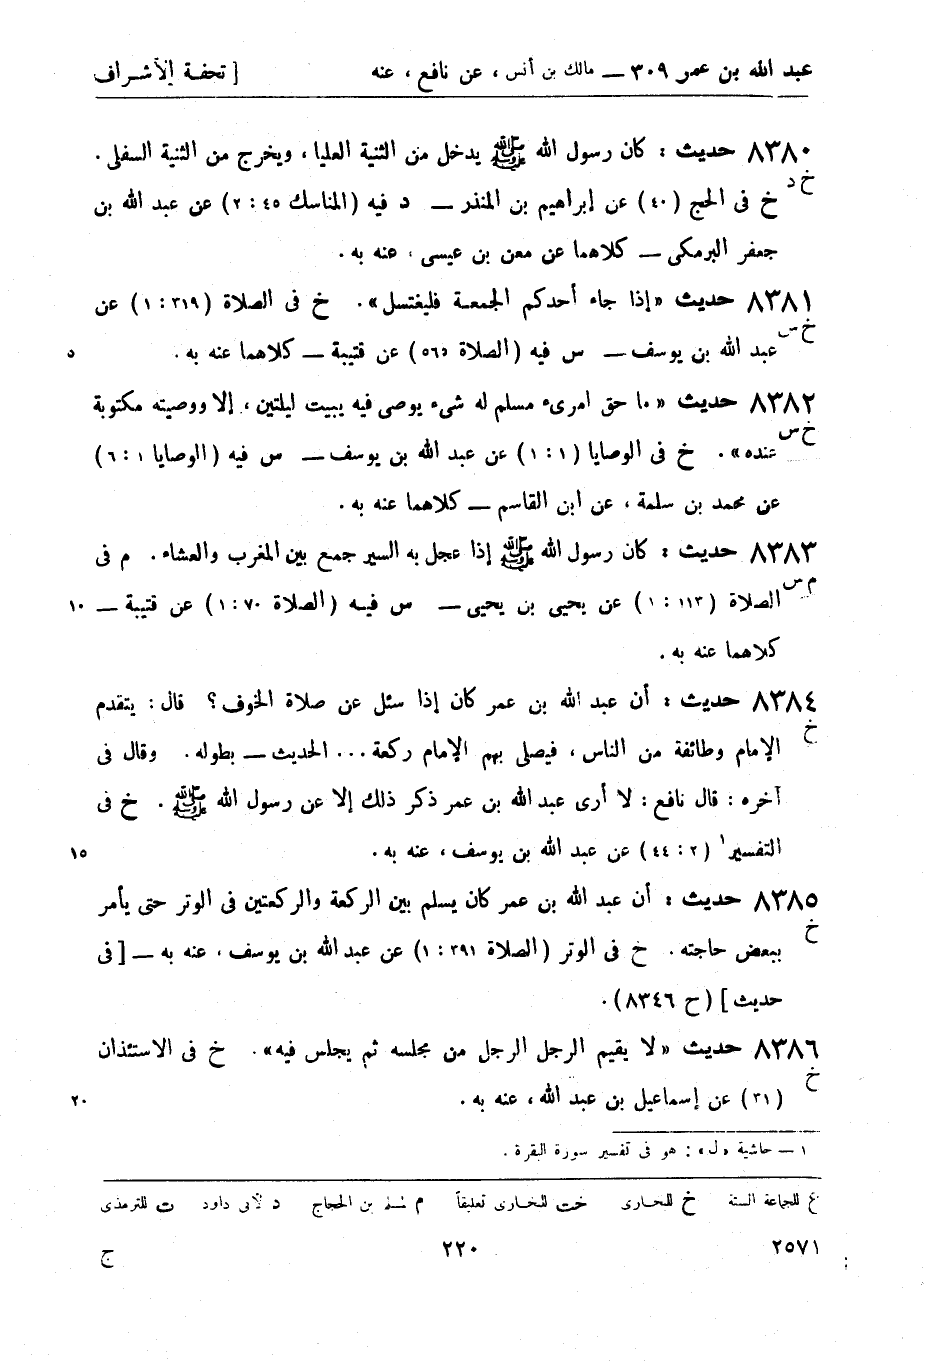 عبد الله بن عمر ٣٠٩ — مالك بن أنس ، عن نافع ، عنه [ تحفة الأشراف
٨٣٨٠ حديث : كان رسول الله ﷺ يدخل من الثنية العليا ، ويخرج من الثنية السفلى .
خ د
خ فى الحج (٤٠) عن إبراهيم بن المنذر — د فيه (المناسك ٤٥ : ٢) عن عبد الله بن
جعفر البرمكى — كلاهما عن معن بن عيسى ، عنه به .
٨٣٨١ حديث «إذا جاء أحدكم الجمعة فليغتسل» . خ فى الصلاة (٣١٩ : ١) عن
خ س
عبد الله بن يوسف — س فيه (الصلاة ٥٦٥) عن قتيبة — كلاهما عنه به . ٥
٨٣٨٢ حديث «ما حق امرىء مسلم له شىء يوصى فيه يبيت ليلتين ، إلا ووصيته مكتوبة
خ س
عنده» . خ فى الوصايا (١ : ١) عن عبد الله بن يوسف — س فيه (الوصايا ١ : ٦)
عن محمد بن سلمة ، عن ابن القاسم — كلاهما عنه به .
٨٣٨٣ حديث : كان رسول الله ﷺ إذا عجل به السير جمع بين المغرب والعشاء . م فى
م س
الصلاة (١١٣ : ١) عن يحيى بن يحيى — س فيه (الصلاة ٧٠ : ١) عن قتيبة — ١٠
كلاهما عنه به .
٨٣٨٤ حديث : أن عبد الله بن عمر كان إذا سئل عن صلاة الخوف ؟ قال : يتقدم
خ
الإمام وطائفة من الناس ، فيصلى بهم الإمام ركعة ... الحديث — بطوله . وقال فى
آخره : قال نافع : لا أرى عبد الله بن عمر ذكر ذلك إلا عن رسول الله ﷺ . خ فى
التفسير١ (٢ : ٤٤) عن عبد الله بن يوسف ، عنه به . ١٥
٨٣٨٥ حديث : أن عبد الله بن عمر كان يسلم بين الركعة والركعتين فى الوتر حتى يأمر
خ
ببعض حاجته . خ فى الوتر (الصلاة ٣٩١ : ١) عن عبد الله بن يوسف ، عنه به — [ فى
حديث ] (ح ٨٣٤٦) .
٨٣٨٦ حديث «لا يقيم الرجل الرجل من مجلسه ثم يجلس فيه» . خ فى الاستئذان
خ
(٣١) عن إسماعيل بن عبد الله ، عنه به . ٢٠
١ — حاشية «ل» : هو فى تفسير سورة البقرة .
ع للجماعة الستة خ للبخارى خت للبخارى تعليقاً م لمسلم بن الحجاج د لأبى داود ت للترمذى
٢٥٧١ ٢٢٠ ج